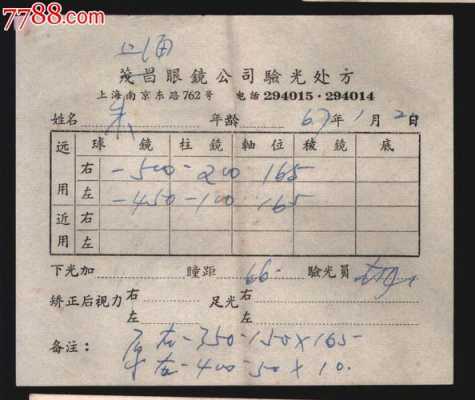 7788.com
上海
茂昌眼鏡公司驗光处方
上海南京东路762号 电話 294015·294014
姓名 朱 年龄 67年1月2日
球鏡 柱鏡 軸位 稜鏡 底
远用 右 -500 -200 165
左 -450 -100 165
近用 右
左
下光加 瞳距 66 驗光員
矫正后视力 右 左 足光 右 左
备注： 原 右 -350 -150 X 165
原 左 -400 -50 X 10